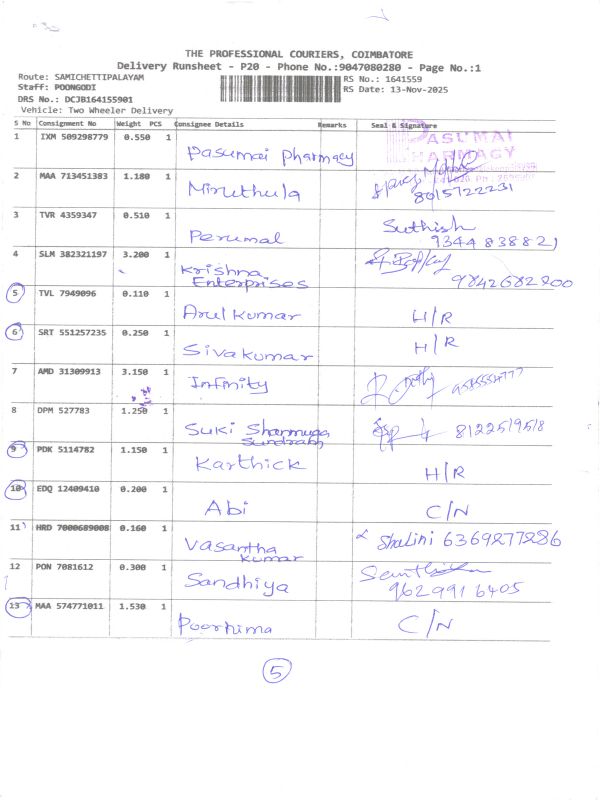 THE PROFESSIONAL COURIERS, COIMBATORE
Delivery Runsheet - P20 - Phone No.:9047080280 - Page No.:1
Route: SAMICHETTIPALAYAM RS No.: 1641559
Staff: POONGODI RS Date: 13-Nov-2025
DRS No.: DCJB164155901
Vehicle: Two Wheeler Delivery
S No Consignment No Weight PCS Consignee Details Remarks Seal & Signature
1 IXM 509298779 0.550 1 Pasumai Pharmacy PASUMAI PHARMACY
2 MAA 713451383 1.180 1 Miruthula 8015722231
3 TVR 4359347 0.510 1 Perumal Suthish
9344838821
4 SLM 382321197 3.200 1 Krishna Enterprises 9842682200
5 TVL 7949096 0.110 1 Arul Kumar H/R
6 SRT 551257235 0.250 1 Sivakumar H/R
7 AMD 31309913 3.150 1 Infinity
8 DPM 527783 1.250 1 Suki Shanmuga Sundram 8122519518
9 PDK 5114782 1.150 1 Karthick H/R
10 EDQ 12409410 0.200 1 Abi C/N
11 HRD 7000689008 0.160 1 Vasantha Kumar Shalini 6369277286
12 PON 7081612 0.300 1 Sandhiya
9629916405
13 MAA 574771011 1.530 1 Poornima C/N
5